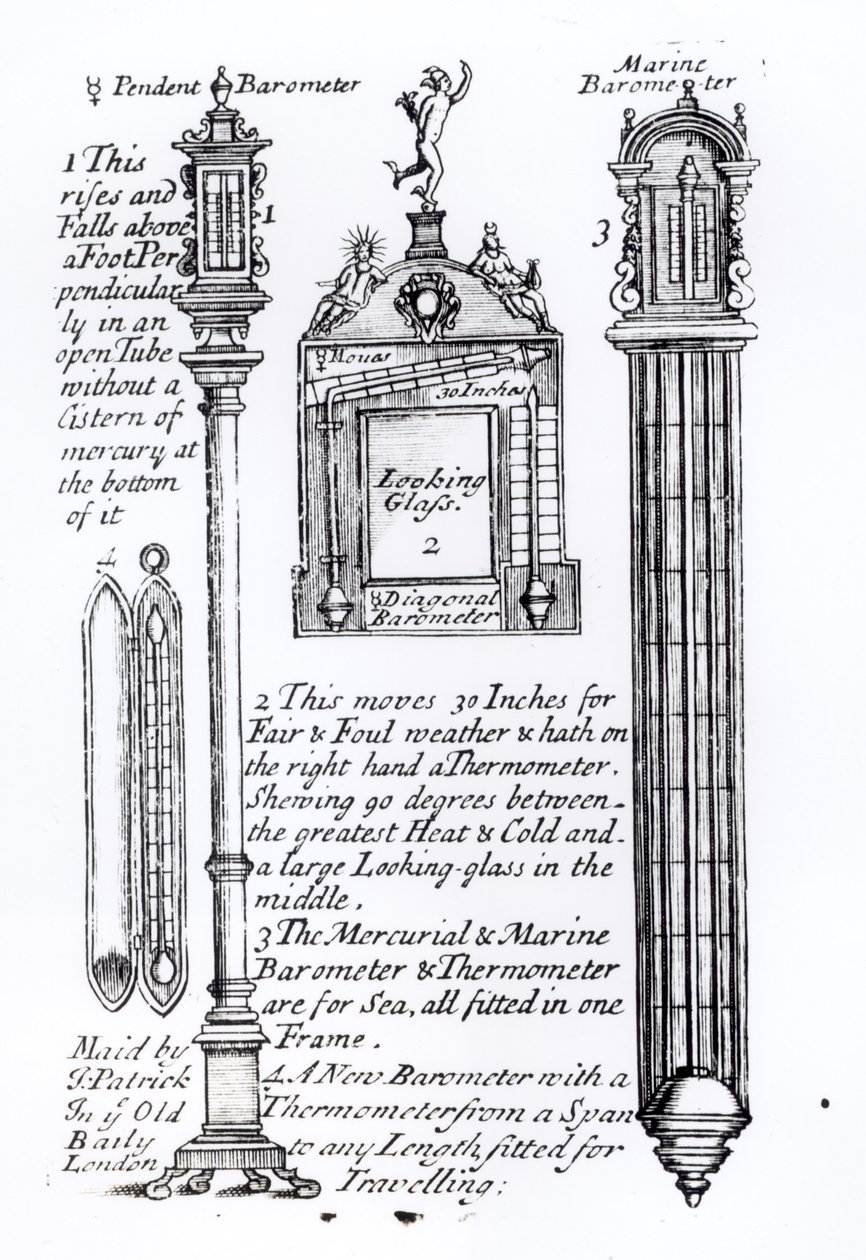 ☿ Pendent Barometer
1 This
riſes and
Falls above
a Foot Per
pendicular
ly in an
open Tube
without a
Cistern of
mercury at
the bottom
of it
1
Marine
Barome-ter
3
☿ Moves
30 Inches
Looking
Glaſs.
2
☿ Diagonal
Barometer
4
2 This moves 30 Inches for
Fair & Foul weather & hath on
the right hand a Thermometer.
Shewing 90 degrees between
the greatest Heat & Cold and
a large Looking-glass in the
middle.
3 The Mercurial & Marine
Barometer & Thermometer
are for Sea, all fitted in one
Frame.
4 A New Barometer with a
Thermometer from a Span
to any Length, fitted for
Travelling;
Maid by
J: Patrick
In yᵉ Old
Baily
London